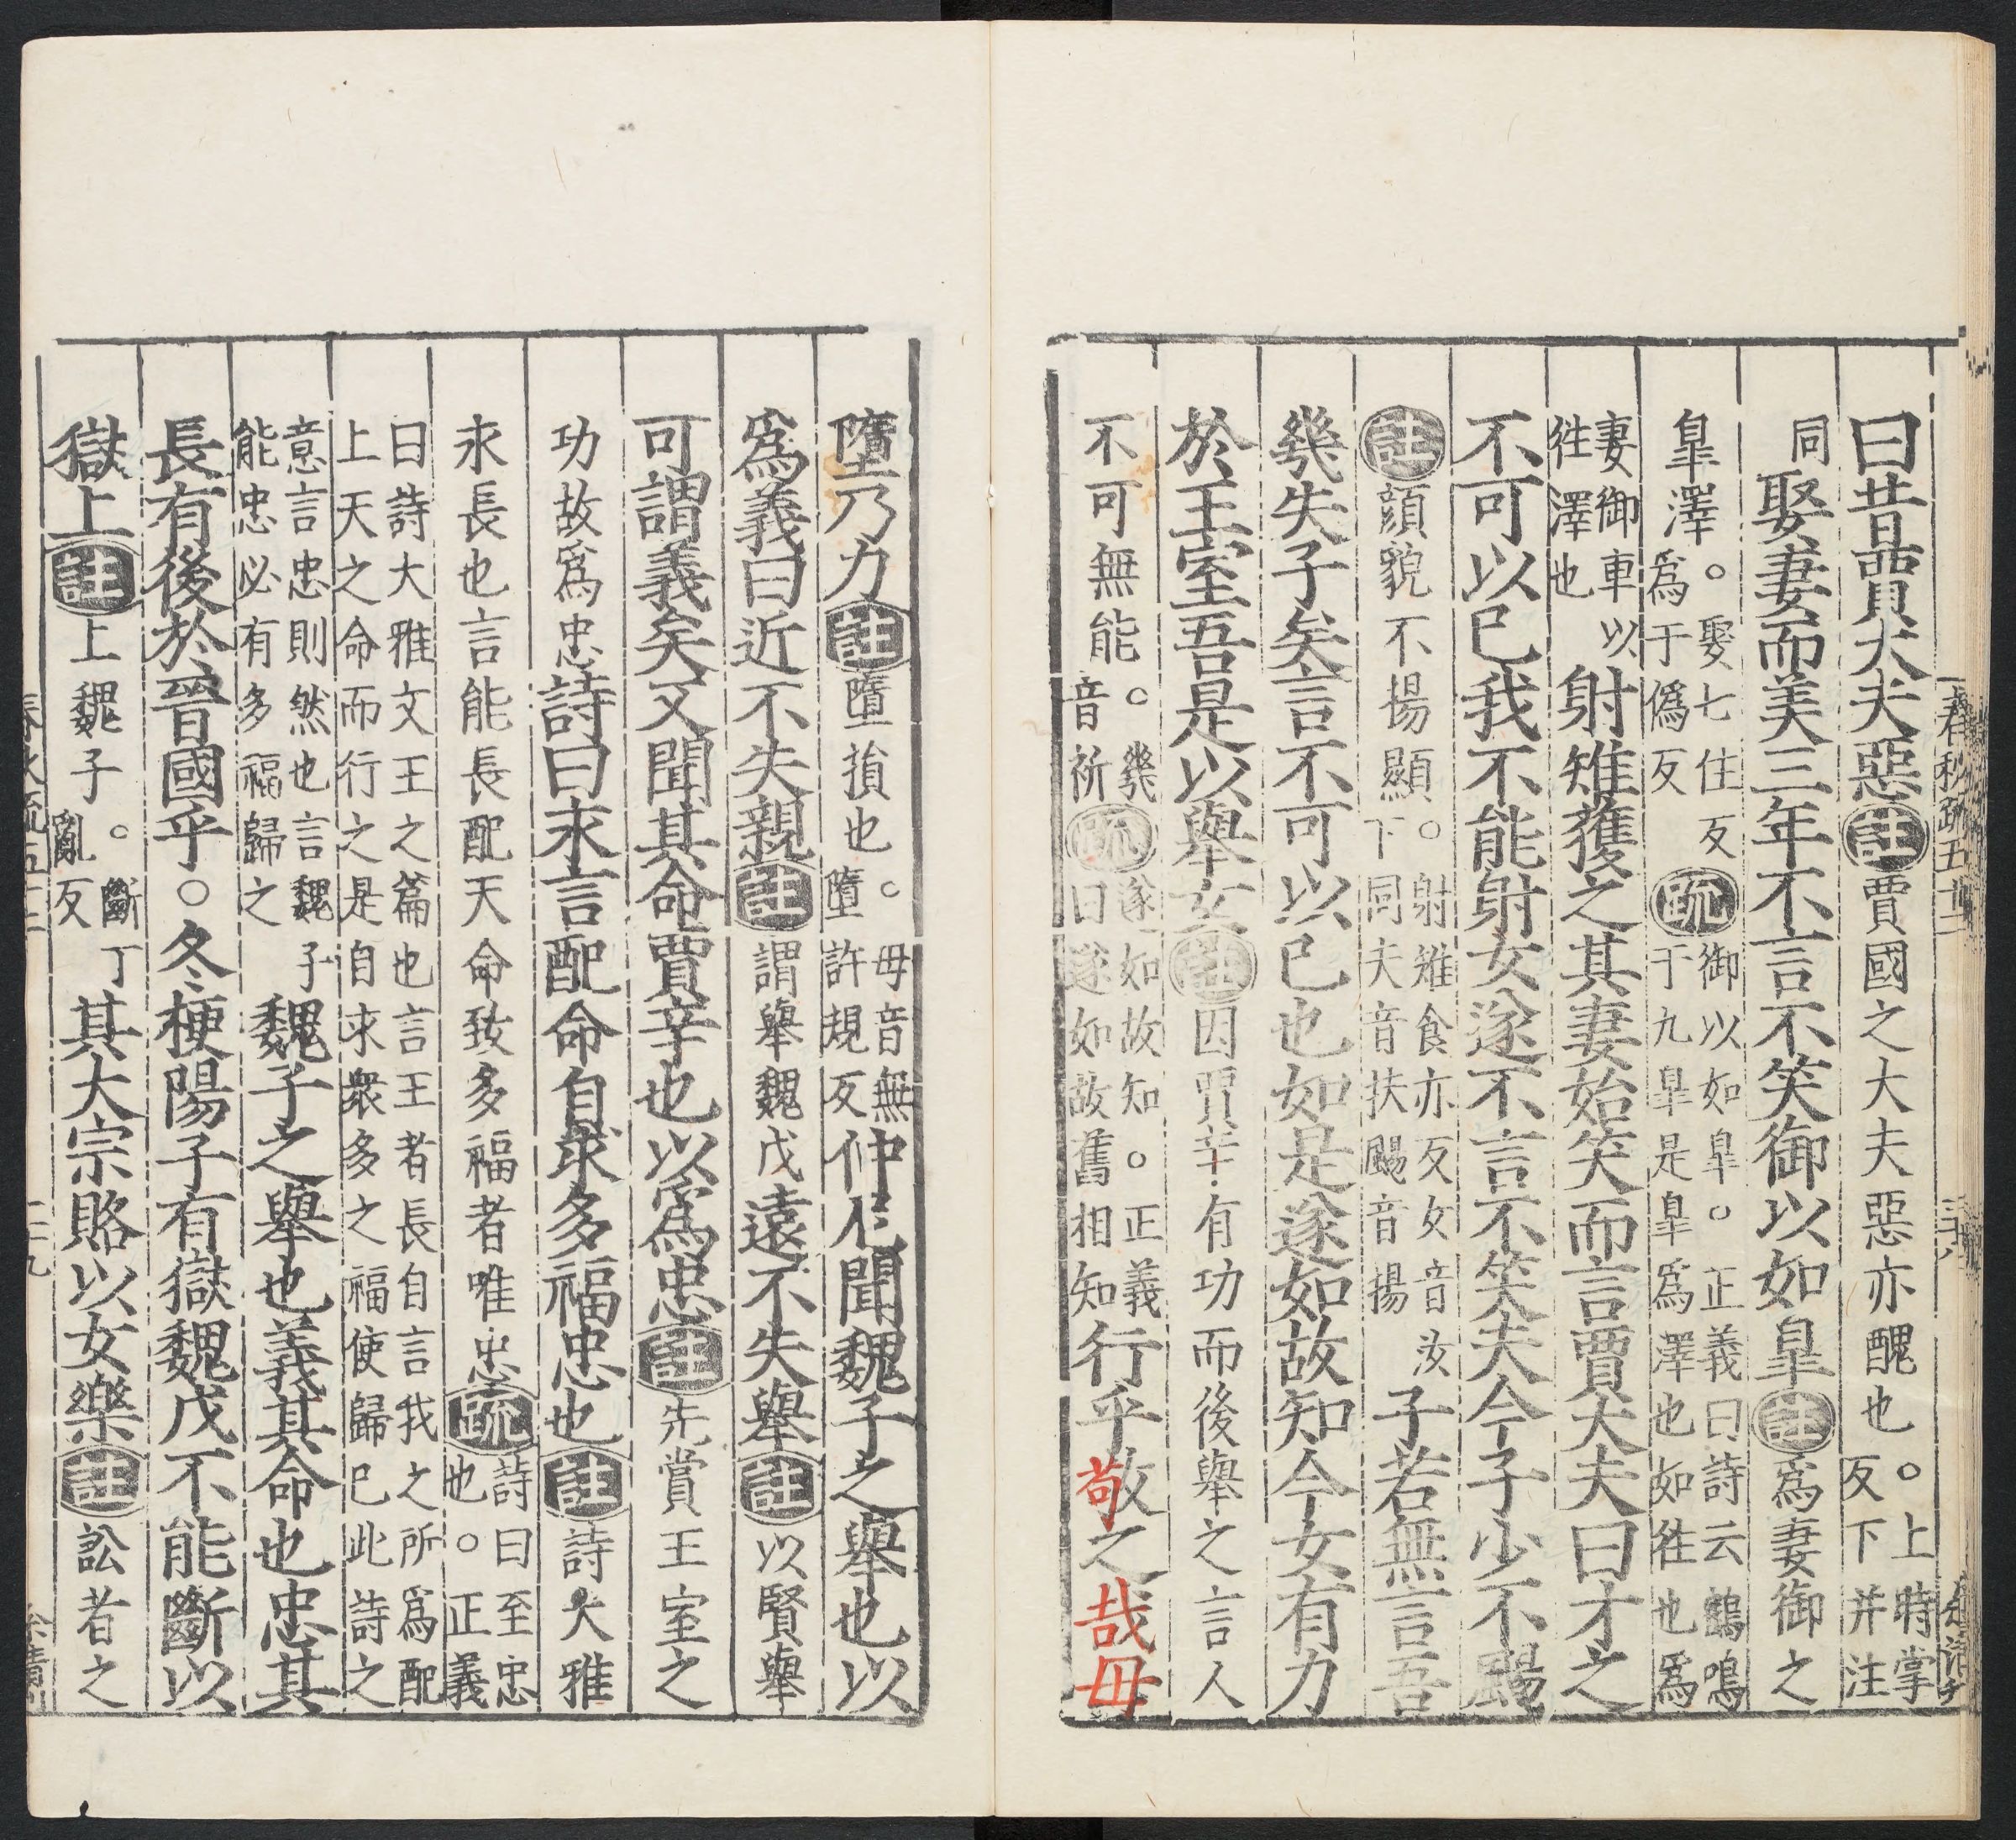 曰昔賈大夫惡註賈國之大夫惡亦醜也○上時掌反下并注
同娶妻而美三年不言不笑御以如皐註爲妻御之
皐澤○娶七住反爲于僞反疏御以如皐○正義曰詩云鶴鳴于九皐是皐爲澤也如徃也爲
妻御車以徃澤也射雉獲之其妻始笑而言賈大夫曰才之
不可以巳我不能射女遂不言不笑夫今子少不颺
註顔貌不揚顯○射雉食亦反女音汝下同夫音扶颺音揚子若無言吾
幾失子矣言不可以巳也如是遂如故知今女有力
於王室吾是以舉女註因賈辛有功而後舉之言人
不可無能○幾音祈疏遂如故知○正義曰遂如故舊相知行乎敬之哉毋
墮乃力註墮損也○毋音無墮許規反仲尼聞魏子之舉也以
爲義曰近不失親註謂舉魏戊遠不失舉註以賢舉
可謂義矣又聞其命賈辛也以爲忠註先賞王室之
功故爲忠詩曰永言配命自求多福忠也註詩大雅
永長也言能長配天命致多福者唯忠疏詩曰至忠也○正義
曰詩大雅文王之篇也言王者長自言我之所爲配上天之命而行之是自求衆多之福使歸巳此詩之
意言忠則然也言魏子能忠必有多福歸之魏子之舉也義其命也忠其
長有後於晉國乎○冬梗陽子有獄魏戊不能斷以
獄上註上魏子○斷丁亂反其大宗賂以女樂註訟者之
春秋疏五十二
二十八
春秋疏五十二
二十九